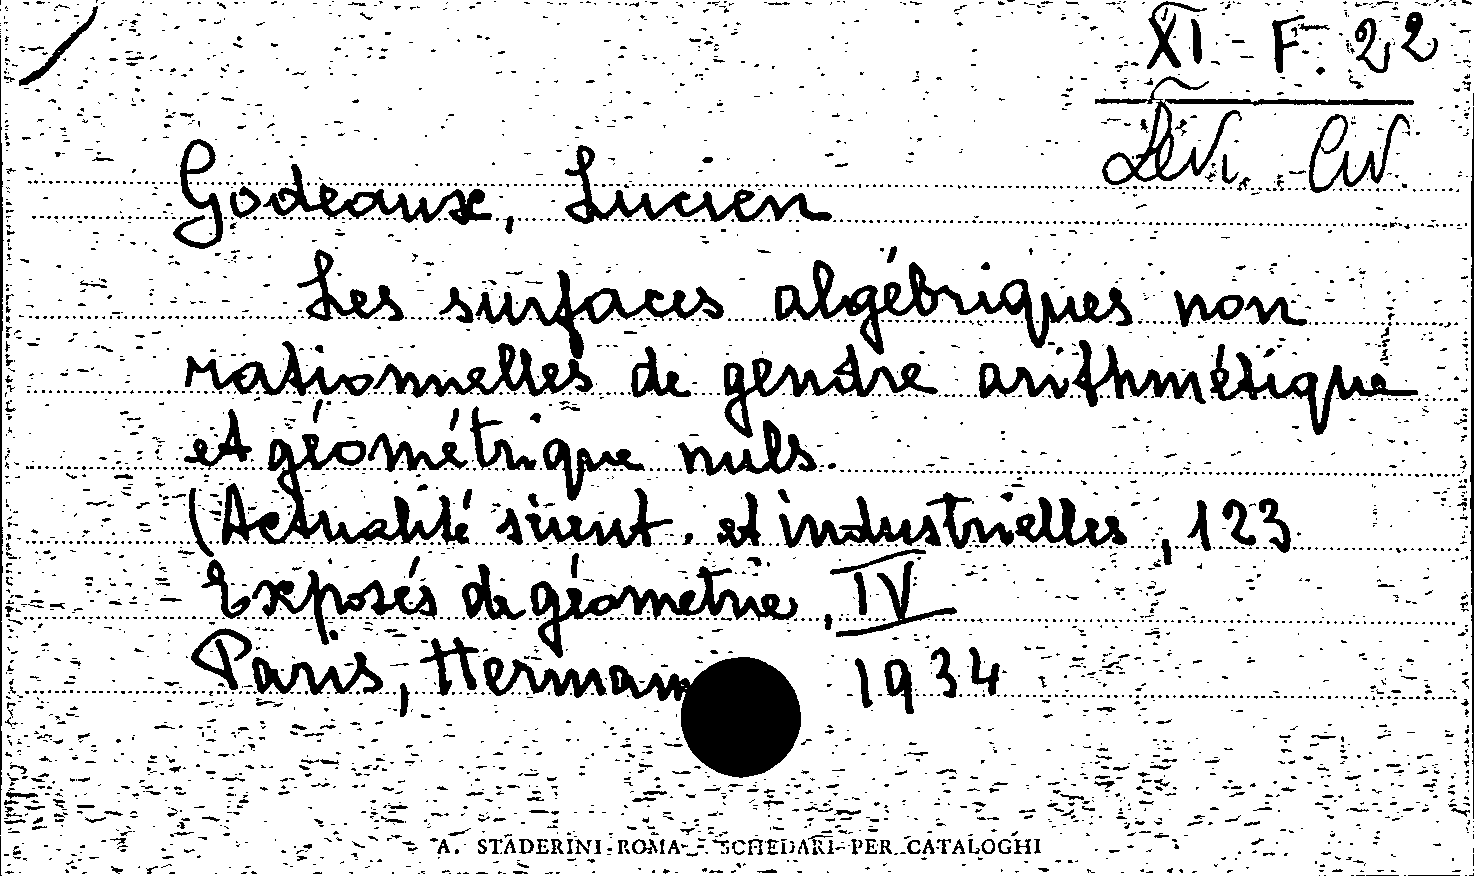 XI - F. 22
Levi Civ.
Godeaux, Lucien
Les surfaces algébriques non
rationnelles de gendre arithmétique
et géométrique nuls.
(Actualité scient. et industrielles, 123
Exposés de géometrie, IV
Paris, Hermann 1934
A. STADERINI - ROMA - SCHEDARI PER CATALOGHI